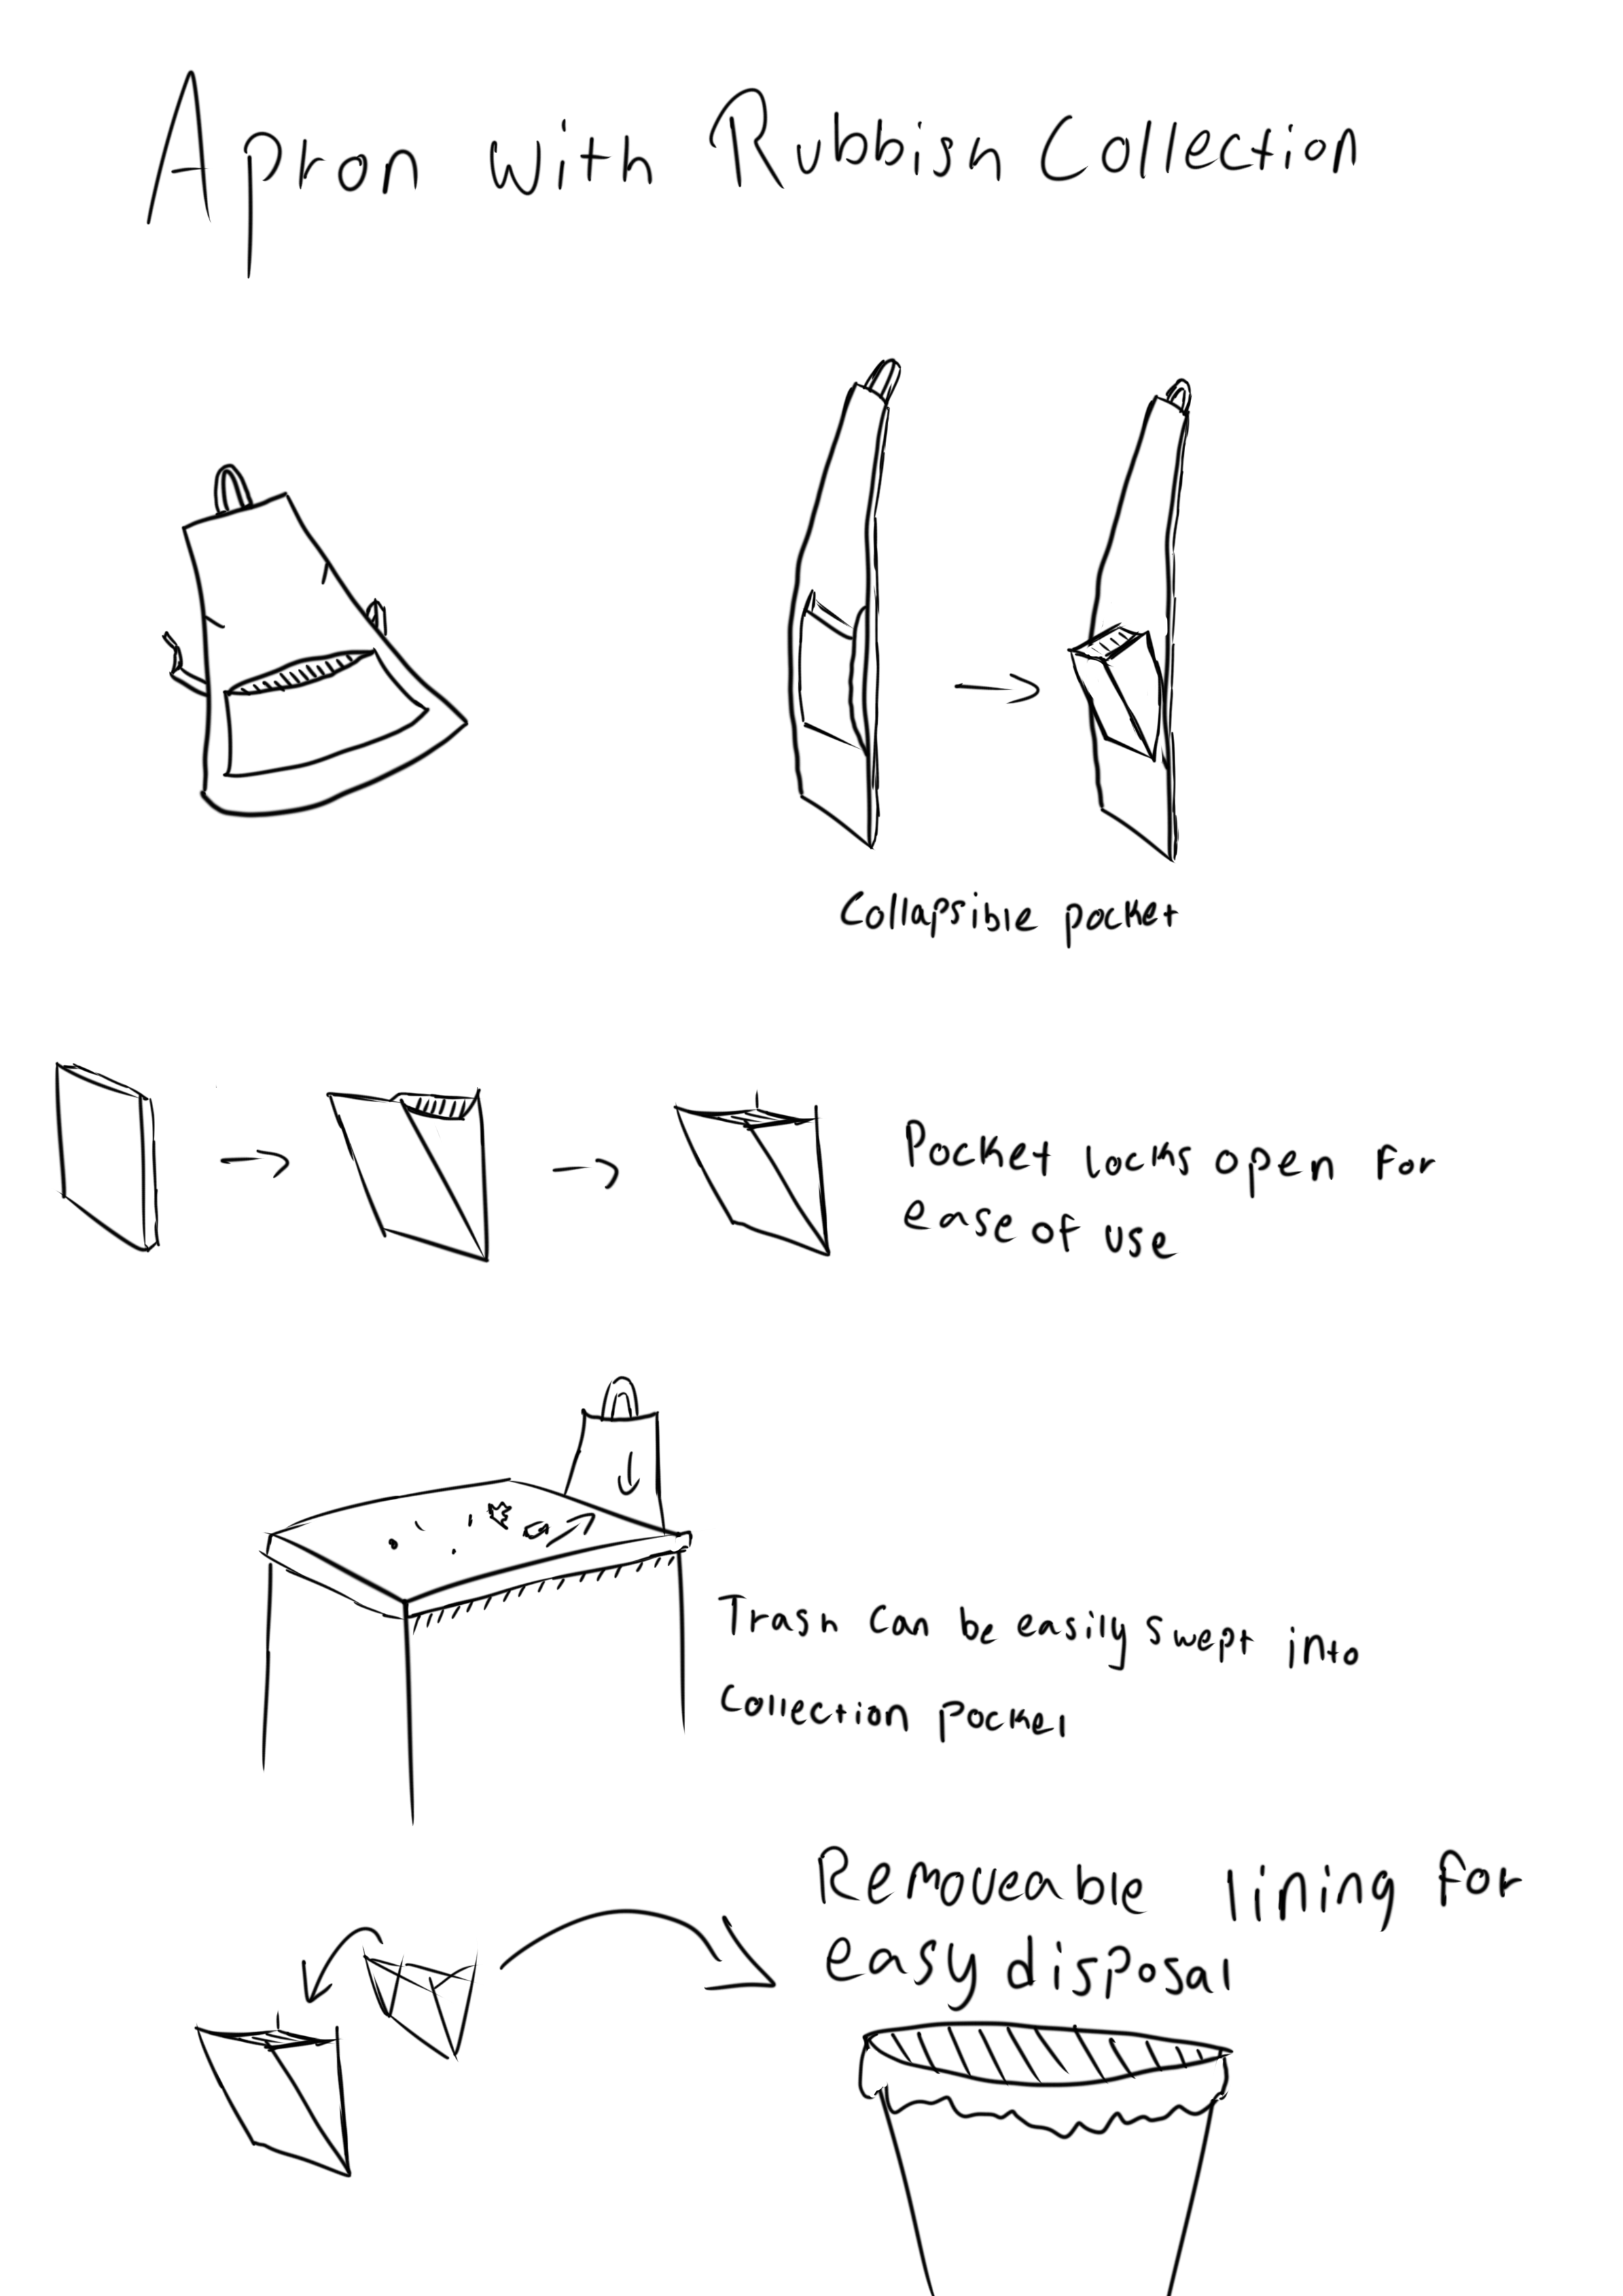 Apron with Rubbish Collection
Collapsible pocket
Pocket locks open for
ease of use
Trash can be easily swept into
Collection pocket
Removeable lining for
easy disposal